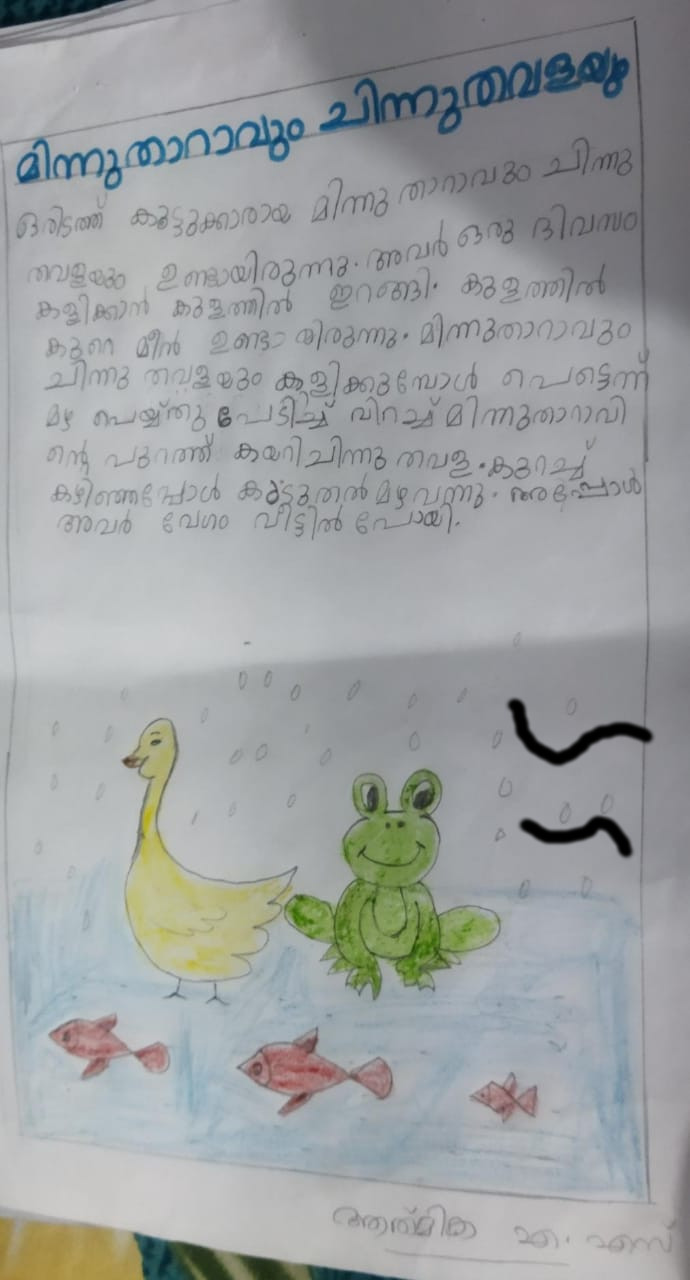 മിന്നുതാറാവും ചിന്നുതവളയും
ഒരിടത്ത് കൂട്ടുക്കാരായ മിന്നു താറാവും ചിന്നു
തവളയും ഉണ്ടായിരുന്നു. അവർ ഒരു ദിവസം
കളിക്കാൻ കുളത്തിൽ ഇറങ്ങി. കുളത്തിൽ
കുറെ മീൻ ഉണ്ടായിരുന്നു. മിന്നുതാറാവും
ചിന്നു തവളയും കളിക്കുമ്പോൾ പെട്ടെന്ന്
മഴ പെയ്യ്തു പേടിച്ച് വിറച്ച് മിന്നുതാറാവി
ന്റെ പുറത്ത് കയറി ചിന്നു തവള. കുറച്ച്
കഴിഞ്ഞപ്പോൾ കൂടുതൽ മഴ വന്നു. അപ്പോൾ
അവർ വേഗം വീട്ടിൽ പോയി.
ആത്മിക എ. എസ്